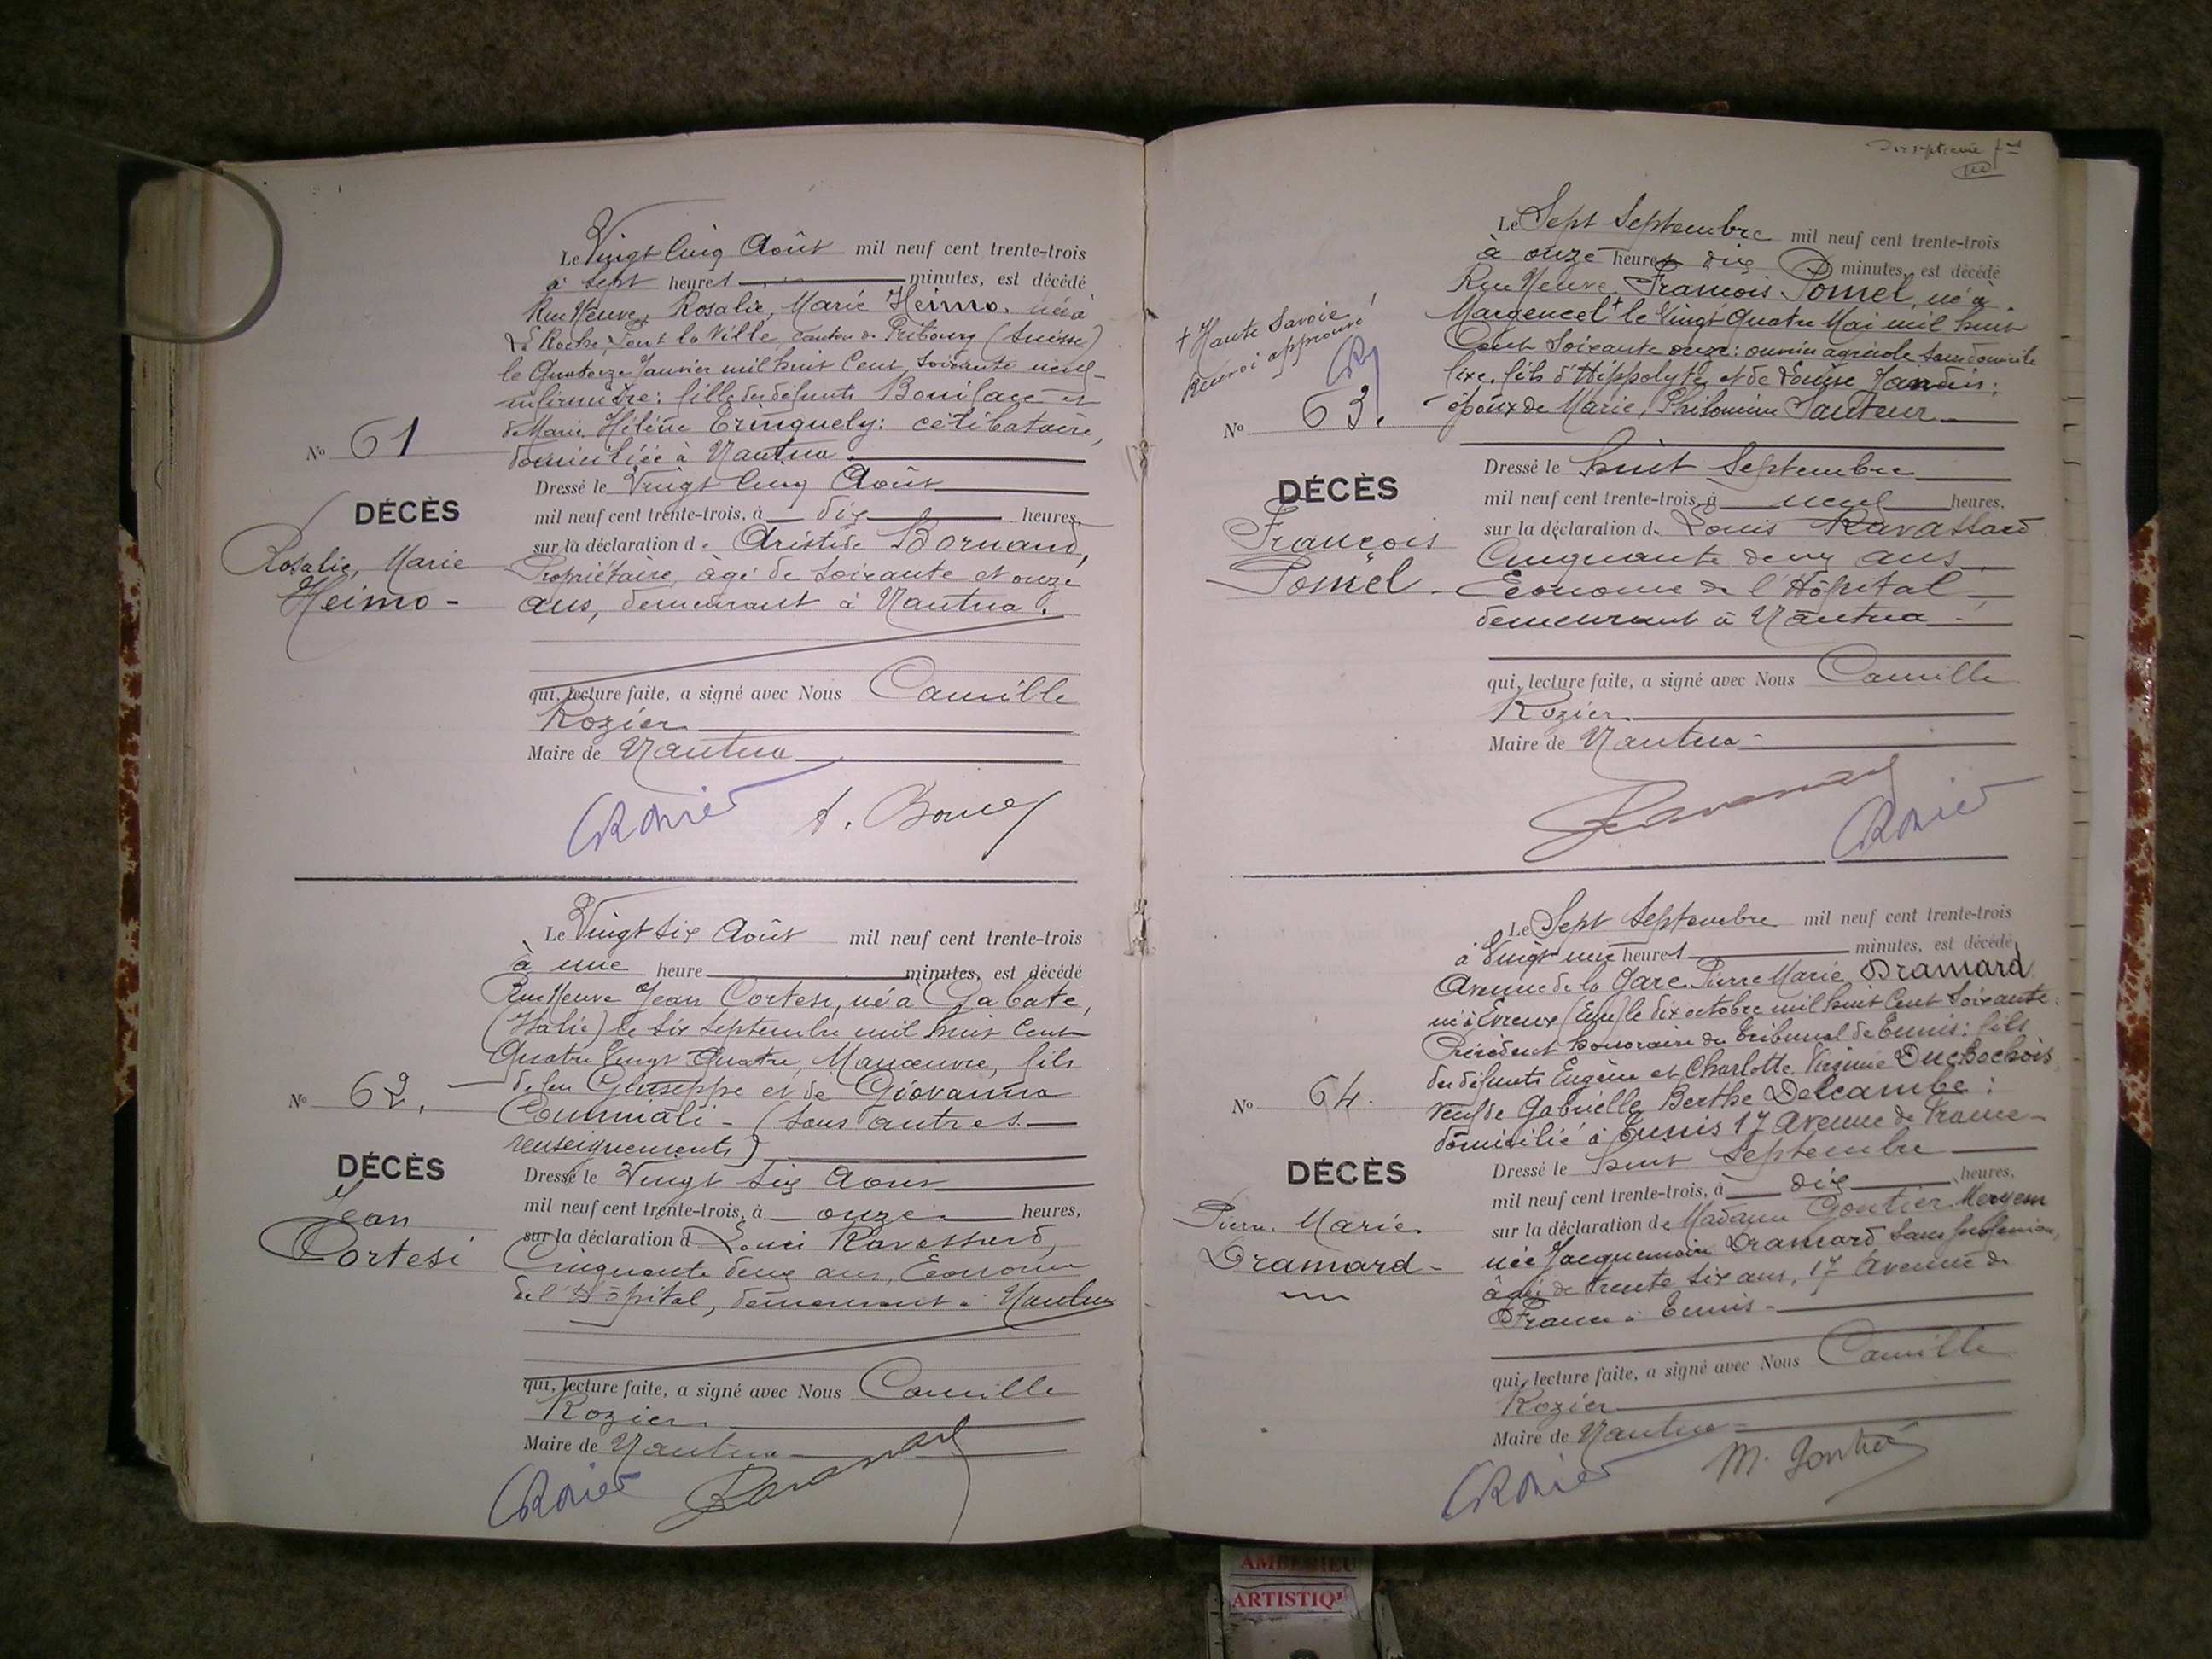 Le Vingt Cinq Août mil neuf cent trente-trois
à sept heures minutes, est décédé
Rue Neuve, Rosalie, Marie Heimo, née à
La Roche, Pont la Ville, canton de Fribourg (Suisse)
le Quatorze Janvier mil huit Cent Soixante neuf
infirmière: fille des défunts Boniface et
de Marie Hélène Tringuely: célibataire,
domiciliée à Nantua.
Nº 61
Dressé le Vingt Cinq Août
mil neuf cent trente-trois, à dix heures,
DÉCÈS
sur la déclaration de Aristide Bornand,
Rosalie, Marie
Heimo -
Propriétaire, âgé de Soixante et onze
ans, demeurant à Nantua.
qui, lecture faite, a signé avec Nous Camille
Rozier
Maire de Nantua
CRozier
Le Vingt six Août mil neuf cent trente-trois
à une heure minutes, est décédé
Rue Neuve Jean Cortesi, né à Gabate,
(Italie) le Six Septembre mil huit Cent
Quatre Vingt Quatre, Manœuvre, fils
de feu Giuseppe et de Giovanna
Nº 62.
(Sans autres
renseignements)
DÉCÈS
Jean
Cortesi
Dressé le Vingt Six Aout
mil neuf cent trente-trois, à onze heures,
sur la déclaration d Louis Ravassard,
Cinquante deux ans, Econome
de l'Hôpital, demeurant à Nantua
qui, lecture faite, a signé avec Nous Camille
Rozier
Maire de Nantua
CRozier Ravassard
Dix septième
Le Sept Septembre mil neuf cent trente-trois
à onze heures dix minutes, est décédé
Rue Neuve, François Pomel, né à
Margencel + le Vingt Quatre Mai mil huit
Cent Soixante onze: ouvrier agricole sans domicile
fixe, fils d'Hippolyte et de Louise Jandin:
époux de Marie, Philomène Sauteur
+ Haute Savoie
Renvoi approuvé
CR
Nº 63.
DÉCÈS
François
Pomel
Dressé le huit Septembre
mil neuf cent trente-trois, à neuf heures,
sur la déclaration de Louis Ravassard
Cinquante deux ans
Econome de l'Hôpital
demeurant à Nantua
qui, lecture faite, a signé avec Nous Camille
Rozier
Maire de Nantua
Ravassard CRozier
Le Sept Septembre mil neuf cent trente-trois
à Vingt une heures minutes, est décédé
Avenue de la Gare Pierre Marie Dramard
né à Evreux (Eure) le dix octobre mil huit Cent Soixante:
Président honoraire du Tribunal de Tunis: fils
des défunts Eugène et Charlotte Virginie Duchochois
Veuf de Gabrielle Berthe Delcambe:
domicilié à Tunis 17 Avenue de France
Nº 64.
DÉCÈS
Pierre Marie
Dramard -
Dressé le huit Septembre
mil neuf cent trente-trois, à dix heures,
sur la déclaration de Madame Gontier Meryem
née Jacquemoin Dramard Sans profession,
âgée de trente six ans, 17 Avenue de
France à Tunis -
qui, lecture faite, a signé avec Nous Camille
Rozier
Maire de Nantua
CRozier M. Gontier
ARTISTIQU